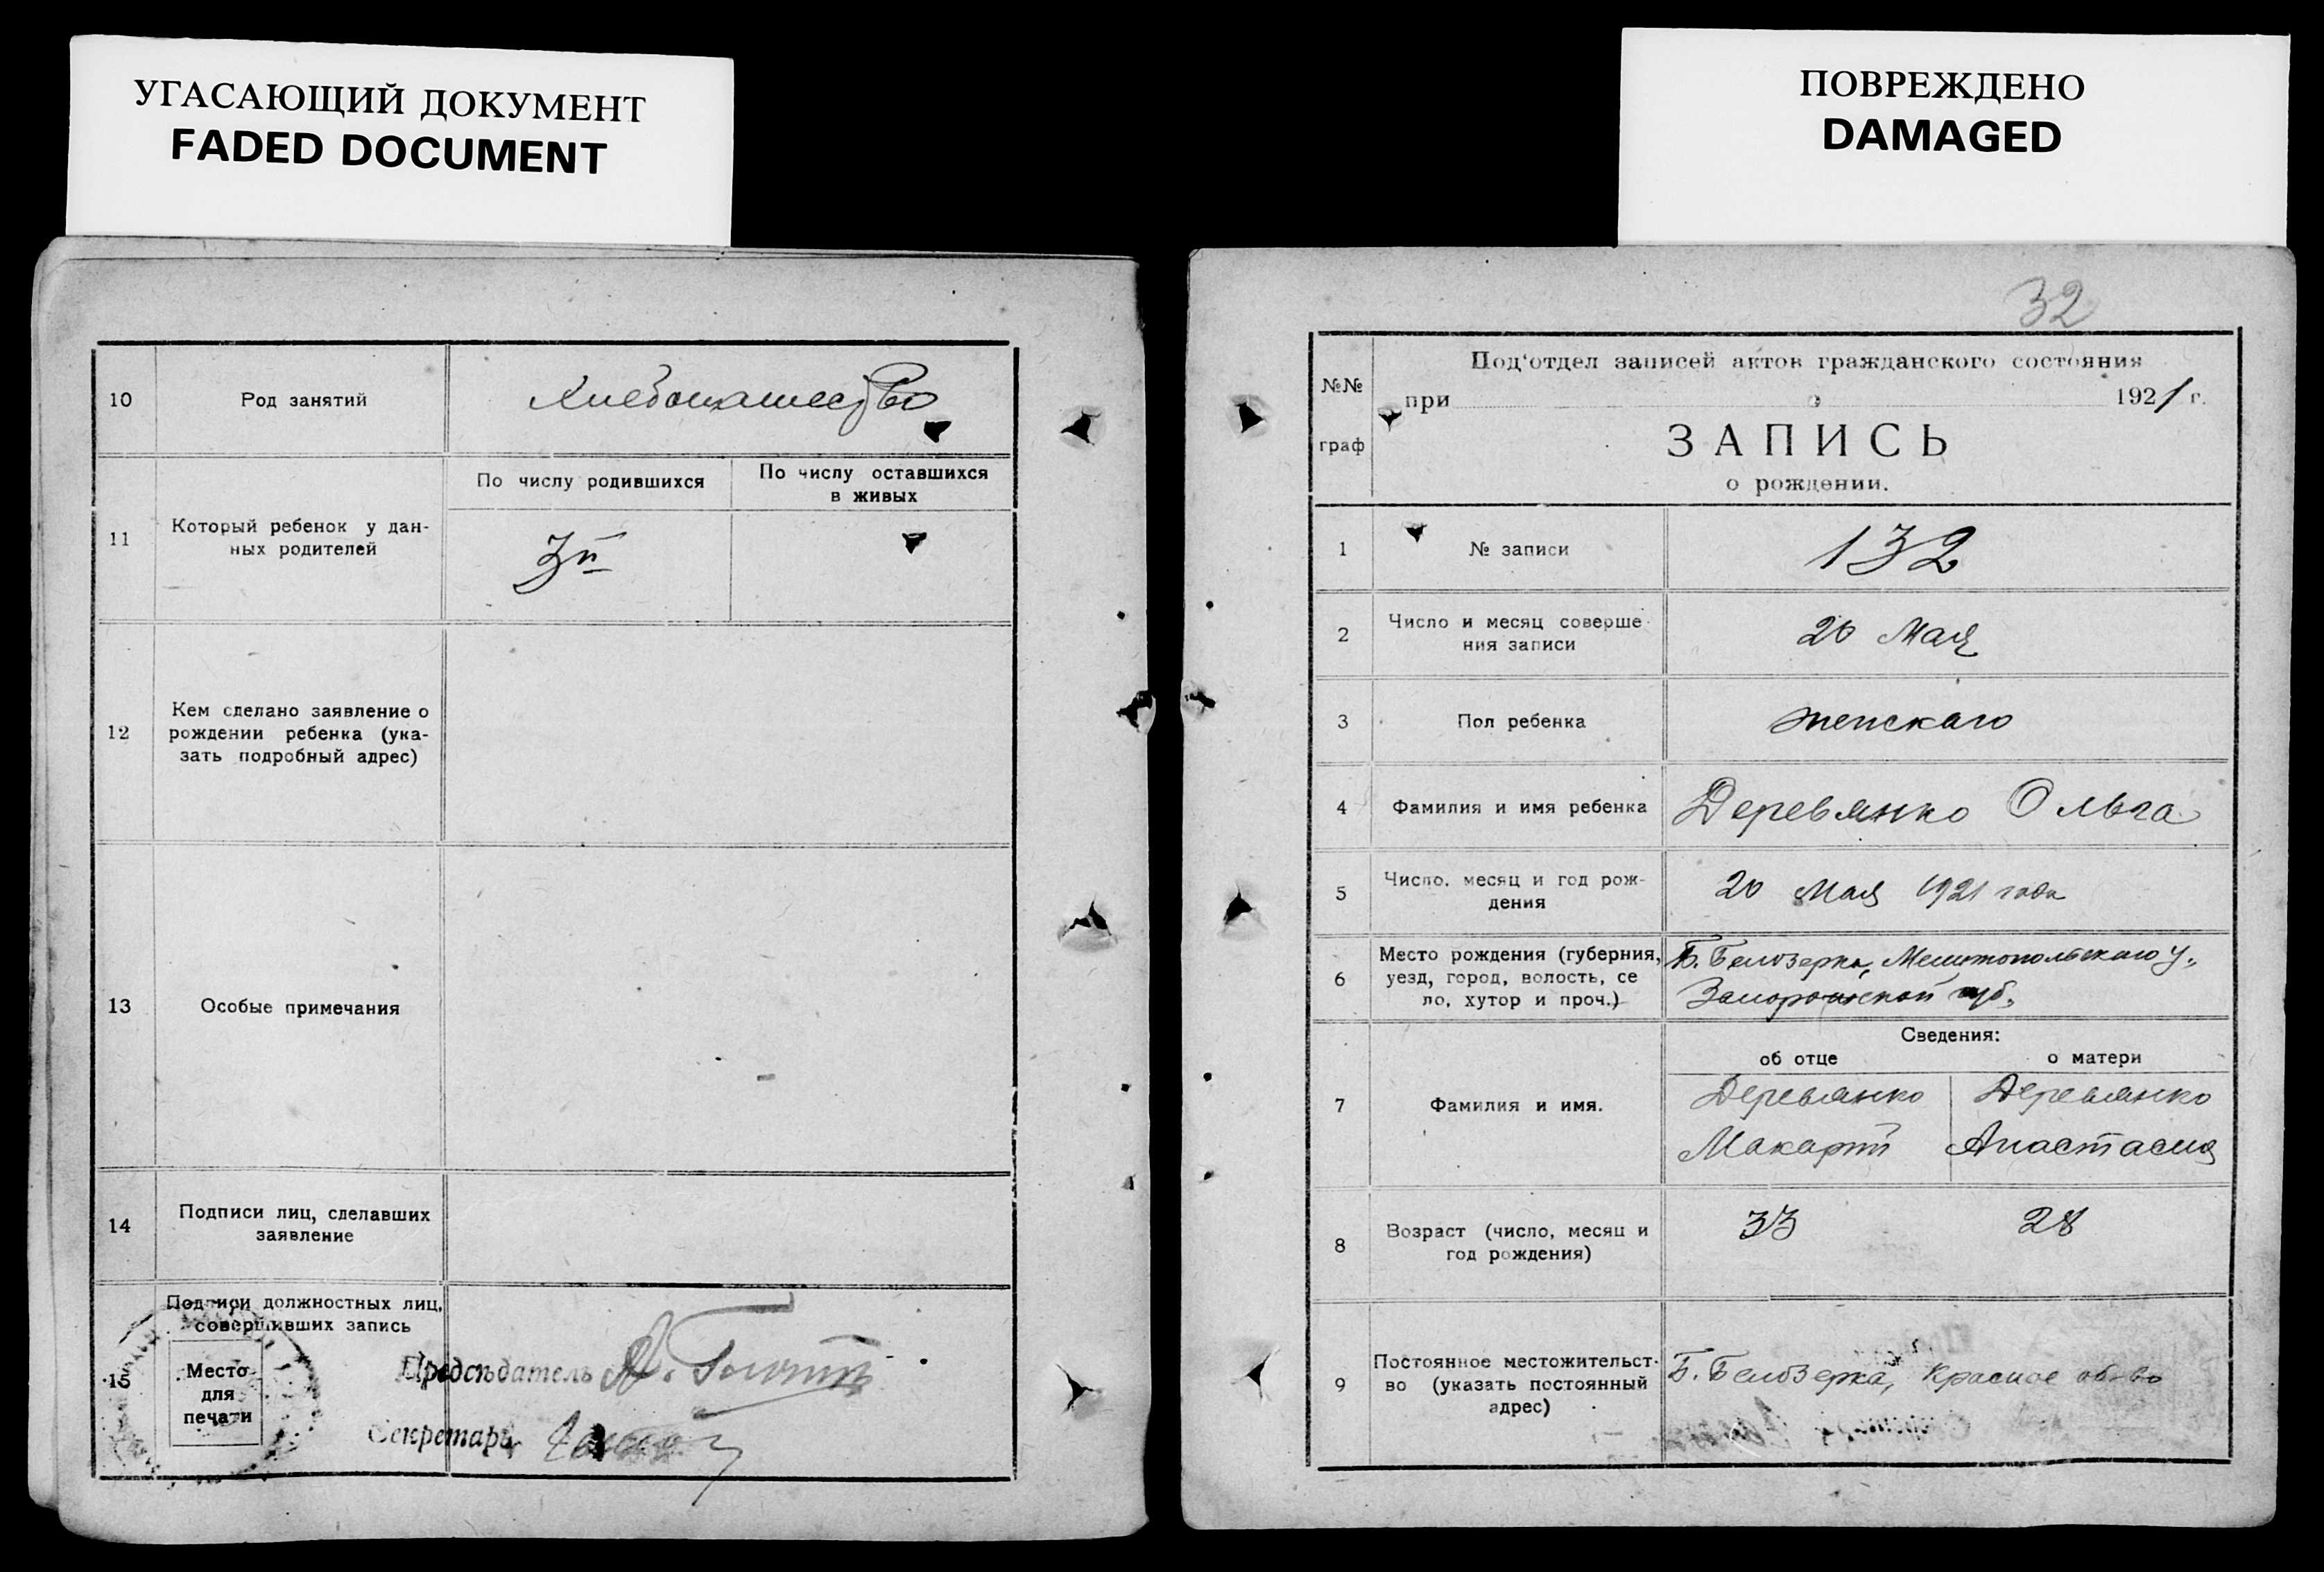 УГАСАЮЩИЙ ДОКУМЕНТ
FADED DOCUMENT
ПОВРЕЖДЕНО
DAMAGED
10
Род занятий
Хлебопашество
11
Который ребенок у дан-
ных родителей
По числу родившихся
По числу оставшихся
в живых
3й
12
Кем сделано заявление о
рождении ребенка (ука-
зать подробный адрес)
13
Особые примечания
14
Подписи лиц, сделавших
заявление
15
Подписи должностных лиц,
совершивших запись
Место
для
печати
Председатель
Секретарь
32
№№
граф
Под'отдел записей актов гражданского состояния
при 1921 г.
ЗАПИСЬ
о рождении.
1
№ записи
132
2
Число и месяц соверше
ния записи
20 Мая
3
Пол ребенка
женскаго
4
Фамилия и имя ребенка
Деревянко Ольга
5
Число, месяц и год рож-
дения
20 Мая 1921 года
6
Место рождения (губерния,
уезд, город, волость, се
ло, хутор и проч.)
Б. Белозерка, Мелитопольскаго у.,
Запорожской губ.
Сведения:
об отце
о матери
7
Фамилия и имя.
Деревянко
Макарий
Деревянко
Анастасия
8
Возраст (число, месяц и
год рождения)
33
28
9
Постоянное местожительст-
во (указать постоянный
адрес)
Б. Белозерка, Красное об-во